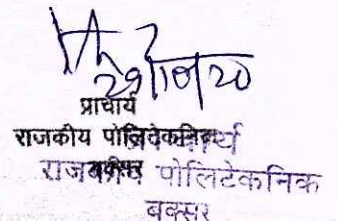 29/10/20
प्राचार्य
राजकीय पोलिटेकनिक
बक्सर
प्राचार्य
राजकीय पोलिटेकनिक
बक्सर